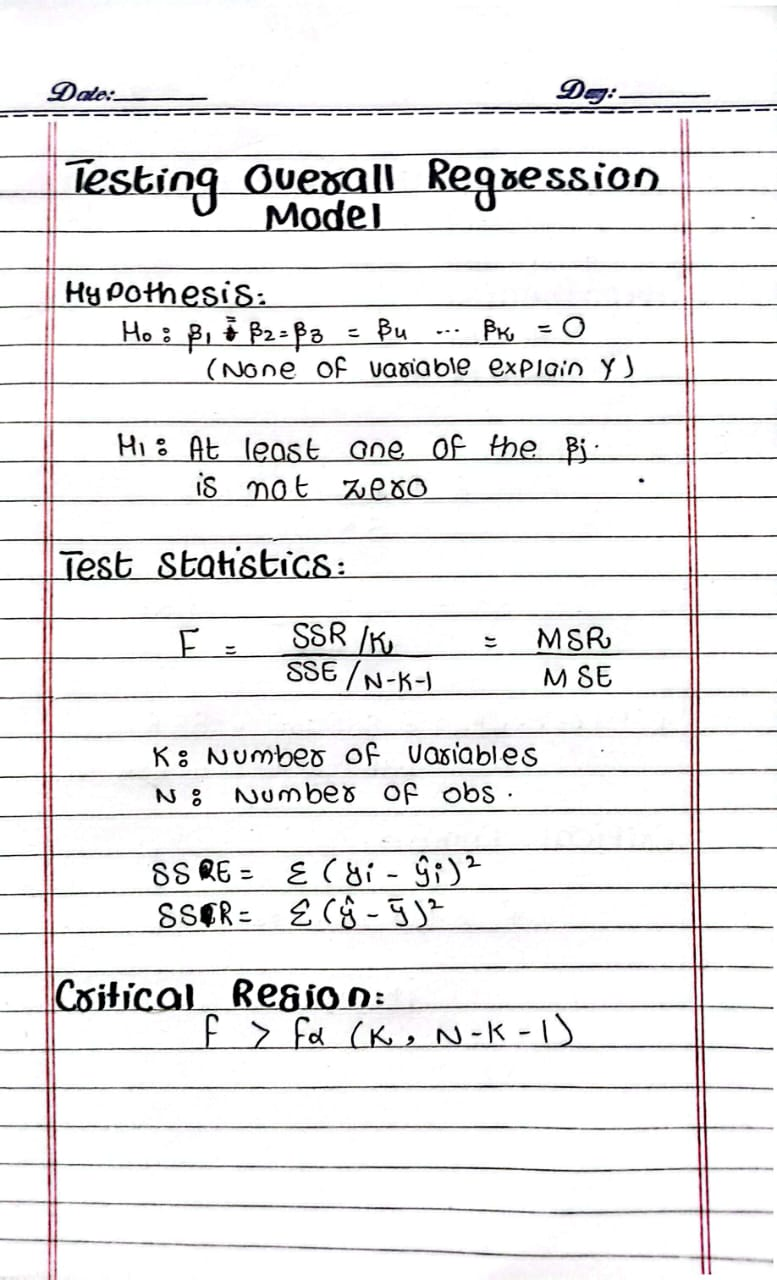 Date: Day:
Testing Overall Regression
Model
Hypothesis:
H₀ : β₁ = β₂ = β₃ = β₄ ... βₖ = 0
(None of variable explain Y)
H₁ : At least one of the βj.
is not zero
Test Statistics:
F = SSR/K / SSE/N-K-1 = MSR / MSE
K : Number of variables
N : Number of obs.
SSE = Σ(yi - ŷi)²
SSR = Σ(ŷ - ȳ)²
Critical Region:
F > Fα (K, N-K-1)